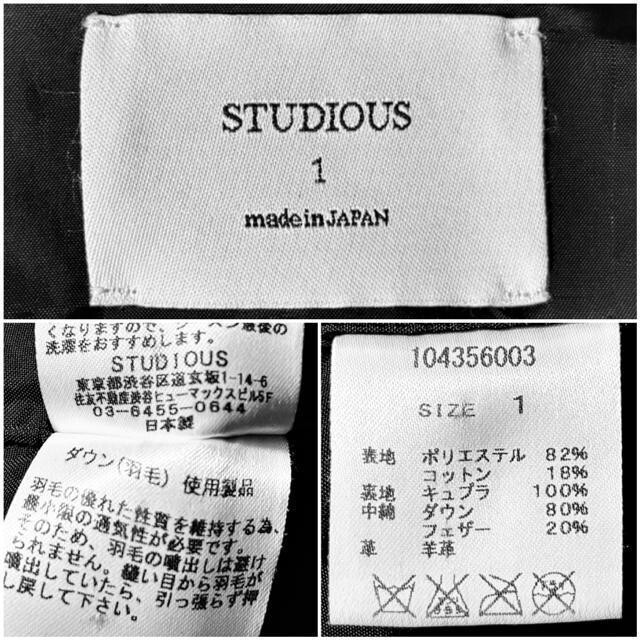 STUDIOUS
1
madeinJAPAN
くなりますので、シーズン最後の
洗濯をおすすめします。
STUDIOUS
東京都渋谷区道玄坂1-14-6
住友不動産渋谷ヒューマックスビル5F
03-6455-0644
日本製
ダウン(羽毛) 使用製品
羽毛の優れた性質を維持する為、
最小限の通気性が必要です。
そのため、羽毛の噴出しは避け
られません。縫い目から羽毛が
噴出していたら、引っ張らず押
し戻して下さい。
104356003
SIZE 1
表地 ポリエステル 82%
コットン 18%
裏地 キュプラ 100%
中綿 ダウン 80%
フェザー 20%
革 羊革